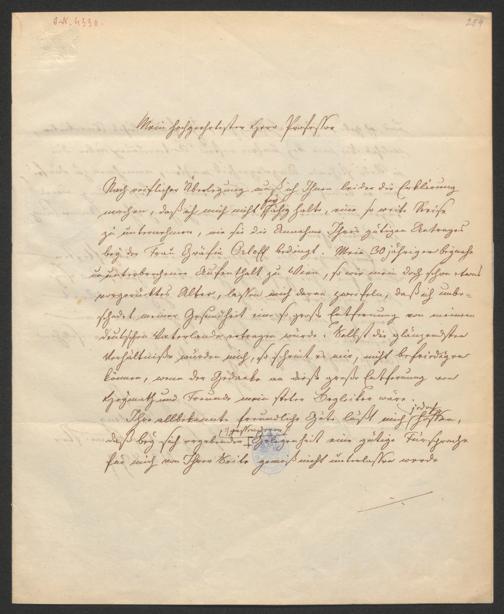 J.N. 4330.
284
Mein hochgeehrtester Herr Professor
Nach reiflicher Überlegung muß ich Ihnen leider die Erklärung
machen, daß ich mich nicht für fähig halte, eine so weite Reise
zu unternehmen, wie sie die Annahme Ihres gütigen Antrages
bey der Frau Gräfin Orloff bedingt. Mein 30jähriger beynahe
ununterbrochener Aufenthalt zu Wien, so wie mein doch schon etwas
vorgerücktes Alter, lassen mich daran zweifeln, daß ich unbe-
schadet meiner Gesundheit eine so große Entfernung von meinem
deutschen Vaterlande ertragen würde. Selbst die glänzendsten
Verhältniße würden mich, so scheint es mir, nicht befriedigen
können, wenn der Gedanke an diese große Entfernung von
Heymath und Freunde mein steter Begleiter wäre.
Ihre allbekannte freundliche Güte läßt mich jedoch hoffen,
daß bey sich ergebender Gelegenheit eine gütige Fürsprache
für mich von Ihrer Seite gewiß nicht unterlassen werde